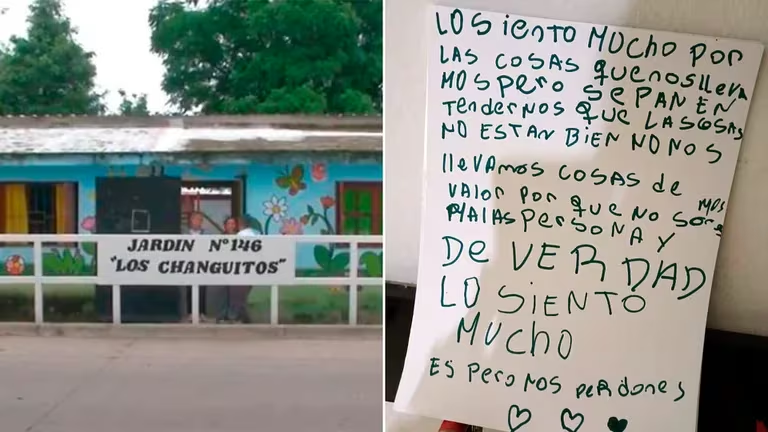 JARDIN Nº146
"LOS CHANGUITOS"
LO SIENTO MUCHO POR
LAS COSAS QUE NOS LLEVA
MOS PERO SEPAN EN
TENDERNOS QUE LAS COSAS
NO ESTAN BIEN NO NOS
LLEVAMOS COSAS DE
VALOR POR QUE NO SOMOS
MALAS PERSONA Y
DE VERDAD
LO SIENTO
MUCHO
ESPERO NOS PERDONES